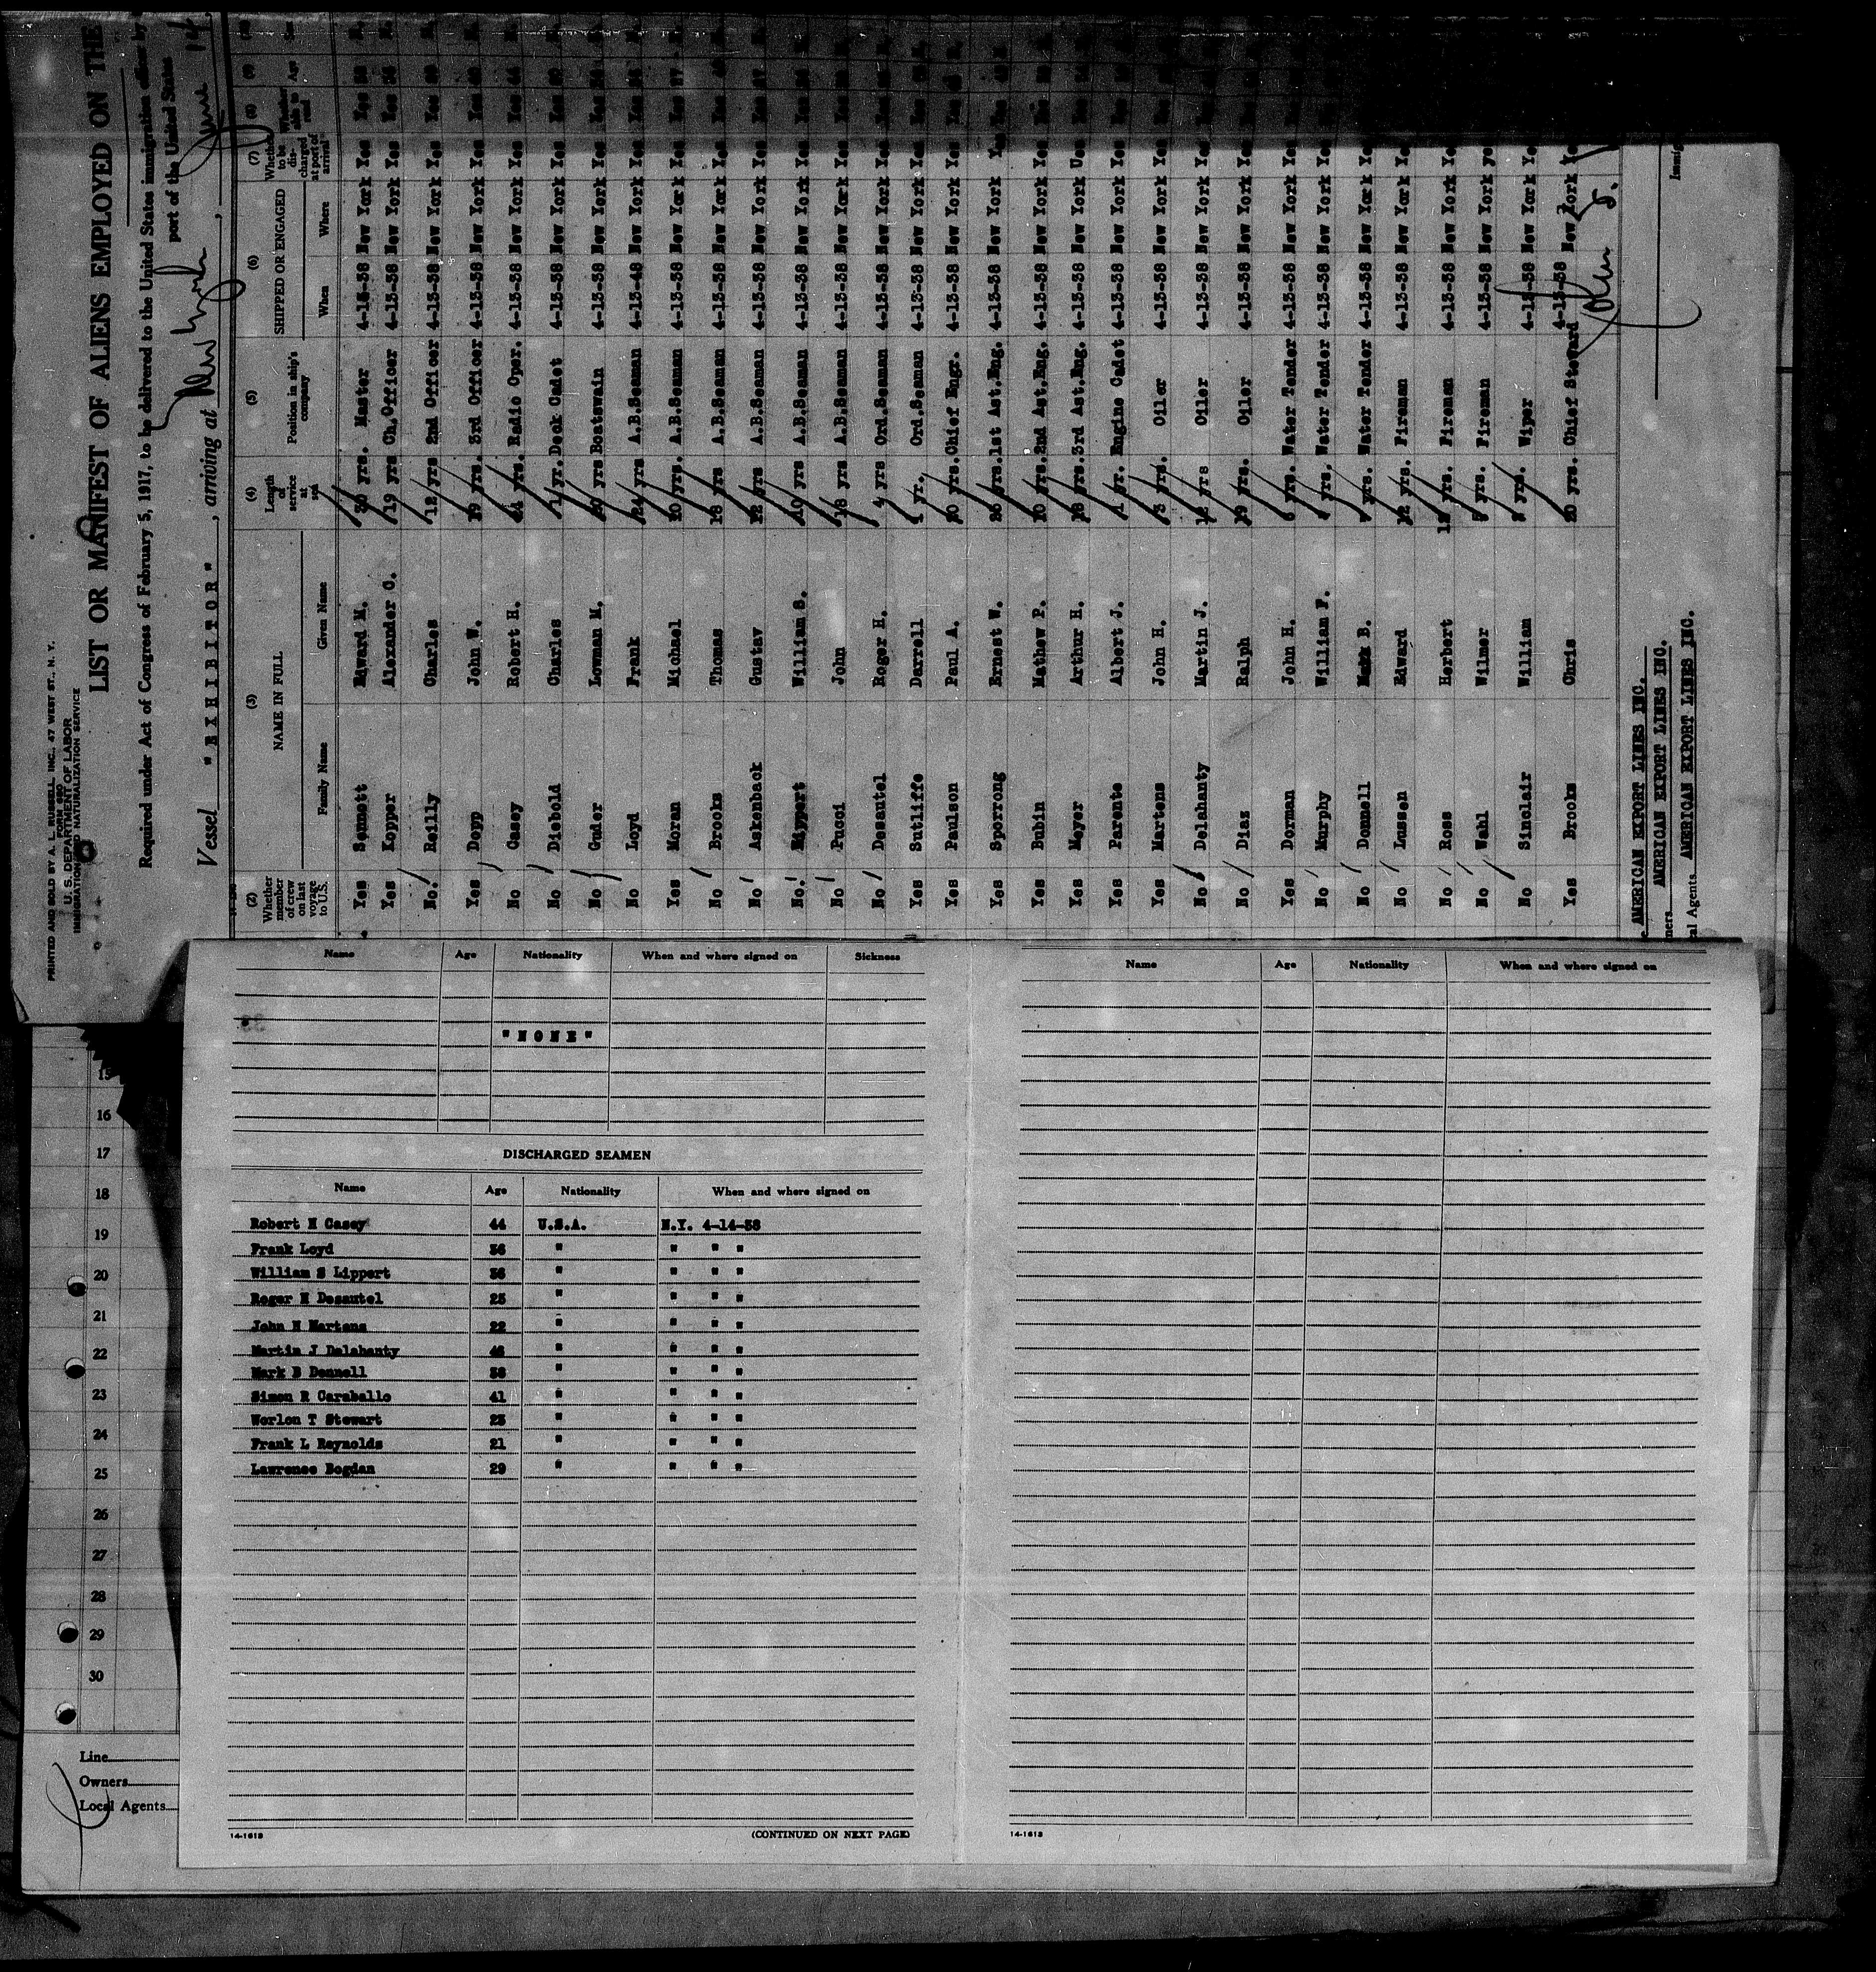 PRINTED AND SOLD BY A. L. RUSSELL, INC., 47 WEST ST., N. Y.
U. S. DEPARTMENT OF LABOR
IMMIGRATION AND NATURALIZATION SERVICE
LIST OR MANIFEST OF ALIENS EMPLOYED ON THE
Required under Act of Congress of February 5, 1917, to be delivered to the United States immigration officer by
port of the United States
Vessel "EXHIBITOR", arriving at New York, June 14
(2) (3) (4) (5) (6) (7) (8) (9)
Whether member of crew on last voyage to U.S. NAME IN FULL Family Name Given Name Length of service at sea Position in ship's company SHIPPED OR ENGAGED When Where Whether to be discharged at port of arrival Whether able to read Age
Yes Sennett Edward M. yrs. Master 4-13-38 New York Yes Yes
Yes Kopper Alexander C. 19 yrs Ch. Officer 4-13-38 New York Yes Yes
No. Reilly Charles 12 yrs 2nd Officer 4-13-38 New York Yes Yes
Yes Depp John W. 19 yrs. 3rd Officer 4-13-38 New York Yes Yes
No Casey Robert H. yrs. Radio Oper. 4-13-38 New York Yes Yes 44
No Diebold Charles 1 yr. Deck Cadet 4-13-38 New York Yes Yes
No Guder Lowman M. yrs Boatswain 4-13-38 New York Yes Yes
No Loyd Frank 24 yrs A.B.Seaman 4-13-48 New York Yes Yes
Yes Moran Michael yrs. A.B.Seaman 4-13-38 New York Yes Yes
No Brooks Thomas 18 yrs A.B.Seaman 4-13-38 New York Yes Yes
No Askenback Gustav 12 yrs A.B.Seaman 4-13-38 New York Yes Yes
No. Lippert William S. 10 yrs A.B.Seaman 4-13-38 New York Yes Yes
No Pucci John 18 yrs A.B.Seaman 4-13-38 New York Yes Yes
No Desautel Roger H. 4 yrs Ord.Seaman 4-13-38 New York Yes Yes
Yes Sutliffe Darrell 1 yr. Ord.Seaman 4-13-38 New York Yes Yes
Yes Paulson Paul A. 20 yrs. Chief Engr. 4-13-38 New York Yes Yes
Yes Sporrong Ernest W. yrs. 1st Ast.Eng. 4-13-38 New York Yes Yes
Yes Bubin Mathew P. 10 yrs. 2nd Ast.Eng. 4-13-38 New York Yes Yes
Yes Meyer Arthur H. 18 yrs. 3rd Ast.Eng. 4-13-38 New York Yes
Yes Parente Albert J. 1 yr. Engine Cadet 4-13-38 New York Yes Yes
Yes Martens John H. 3 yrs. Oiler 4-13-38 New York Yes
No Delahanty Martin J. yrs Oiler 4-13-38 New York Yes
No Diaz Ralph 19 yrs. Oiler 4-13-38 New York Yes
Yes Dorman John H. yrs. Water Tender 4-13-38 New York Yes
No Murphy William F. yrs. Water Tender 4-13-38 New York Yes
No Donnell Mark B. yrs. Water Tender 4-13-38 New York Yes
No Lassen Edward 12 yrs. Fireman 4-13-38 New York Yes
No Ross Herbert yrs. Fireman 4-13-38 New York Yes
No Wahl Wilmer yrs. Fireman 4-13-38 New York yes
No Sinclair William yrs. Wiper 4-13-38 New York Yes
Yes Brooks Chris 20 yrs. Chief Steward 4-13-38 New York Yes
AMERICAN EXPORT LINES INC.
AMERICAN EXPORT LINES INC.
cal Agents AMERICAN EXPORT LINES INC.
Name Age Nationality When and where signed on Sickness
"NONE"
DISCHARGED SEAMEN
Name Age Nationality When and where signed on
Robert H Casey 44 U.S.A. N.Y. 4-14-38
Frank Loyd 36 " " " "
William S Lippert 36 " " " "
Roger H Desautel 25 " " " "
John H Martens 22 " " " "
Martin J Delahanty 46 " " " "
Mark B Donnell 38 " " " "
Simon R Caraballo 41 " " " "
Worlon T Stewart 23 " " " "
Frank L Reynolds 21 " " " "
Lawrence Bogdan 29 " " " "
14-1613 (CONTINUED ON NEXT PAGE)
Name Age Nationality When and where signed on
14-1613
15
16
17
18
19
20
21
22
23
24
25
26
27
28
29
30
Line
Owners
Local Agents